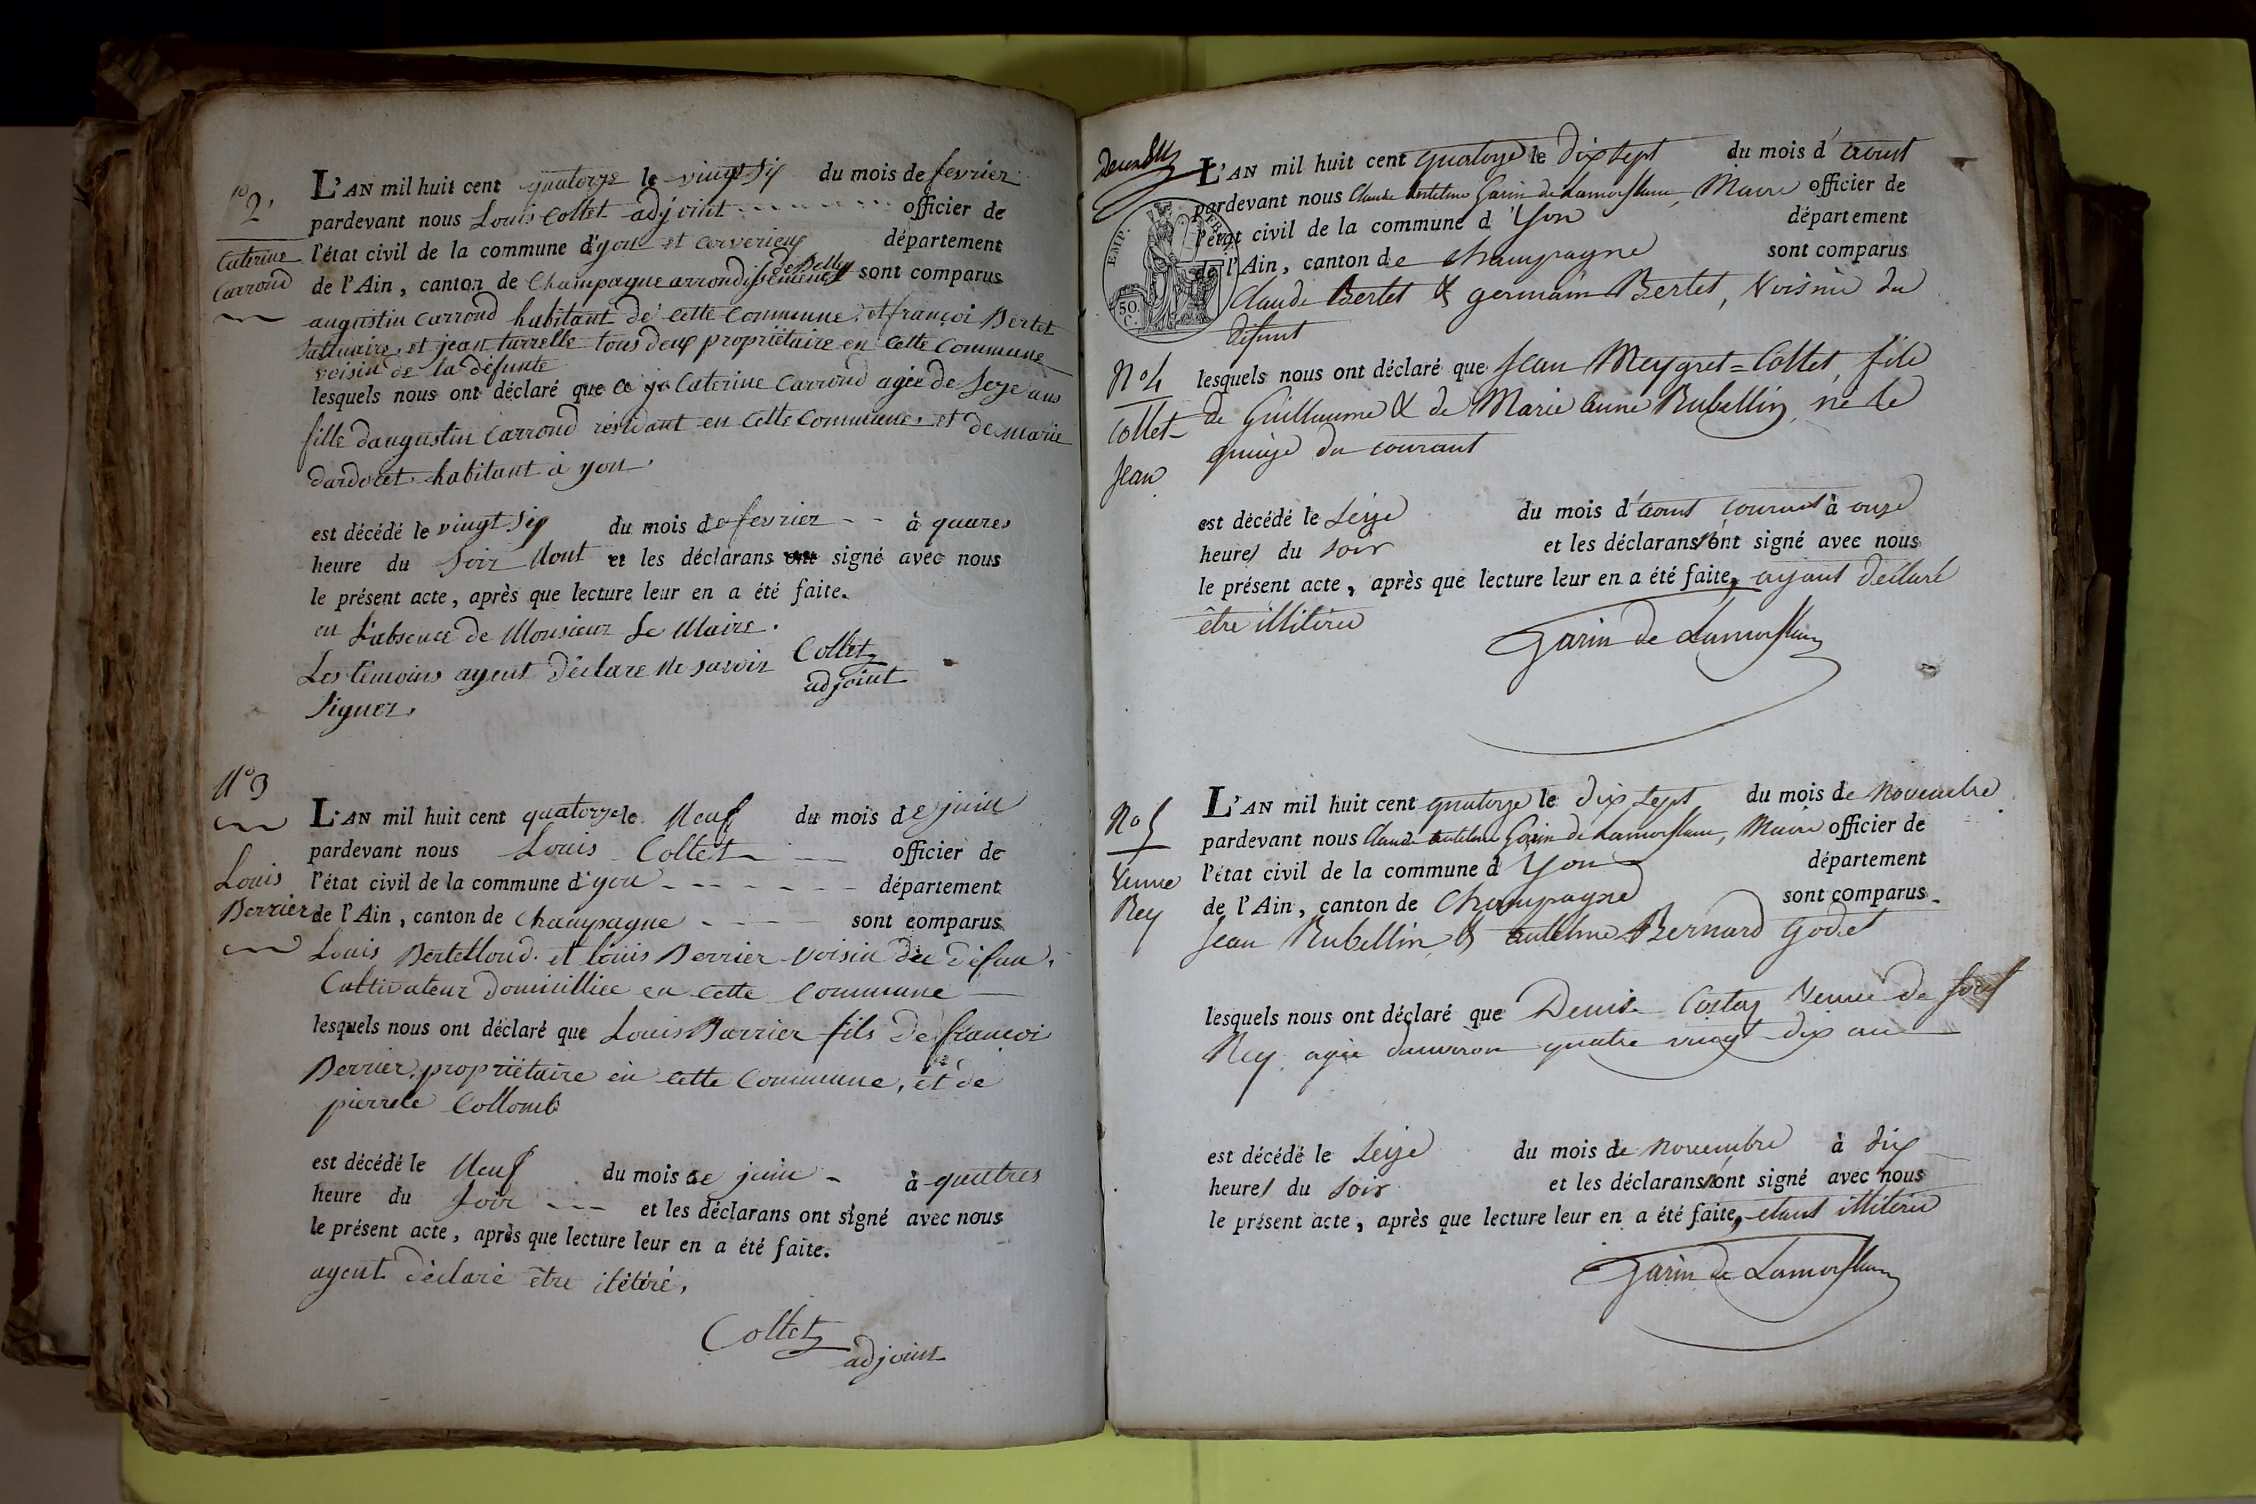 N°2.
Caterine
Carrond
L'AN mil huit cent quatorze le vingt six du mois de fevrier
pardevant nous Louis Collet adjoint officier de
l'état civil de la commune d'yon et Cerverieux département
de Belley
de l'Ain, canton de Champagne arrondissement sont comparus
augustin Carrond habitant de cette Commune. et françoi Bertet
et jean turrelle tous deux propriëtaire en Cette Commune
voisin de la défunte
lesquels nous ont déclaré que Caterine Carrond agée de seze ans
fille daugustin Carrond résidant en Cette Commune. et de marie
dardotet habitant à yon.
est décédé le vingt six du mois de fevrier à quares
heure du Soir dont et les déclarans signé avec nous
le présent acte, après que lecture leur en a été faite.
en L'absence de Monsieur Le Maire.
Les témoins ayent déclare ne savoir
Signer.
Collet
adjoint
N°3
Louis
Berrier
L'AN mil huit cent quatorze le Neuf du mois de juin
pardevant nous Louis Collet officier de
l'état civil de la commune d'yon département
de l'Ain, canton de Champagne sont comparus
Louis Bertelloud. et louis Berrier voisin du défun.
Cultivateur domicilliee en cette Commune
lesquels nous ont déclaré que Louis Barrier fils de françoi
Berrier. propriëtaire en cette Commune, et de
pierrete Collomb
est décédé le Neuf du mois de juin à quatres
heure du Soir et les déclarans ont signé avec nous
le présent acte, après que lecture leur en a été faite.
ayent déclaré être iletéré.
Collet
adjoint
EMP.
50.
C.
N°4
Collet
Jean
L'AN mil huit cent quatorze le dix sept du mois d'aoust
pardevant nous Claude Antelme Garin de Lamorflans, Maire officier de
l'état civil de la commune d'Yon département
de l'Ain, canton de Champagne sont comparus
Claude Bertet & germain Bertet, Voisin du
défunt
lesquels nous ont déclaré que Jean Meygret=Collet, fils
de Guillaume & de Marie Anne Rubellin, né le
quinze du courant
est décédé le Seize du mois d'aoust courant à onze
heures du soir et les déclarans n'ont signé avec nous
le présent acte, après que lecture leur en a été faite, ayant déclaré
être illitéré
Garin de Lamorflans
No 5
Veuve
Rey
L'AN mil huit cent quatorze le dix sept du mois de Novembre
pardevant nous Claude Antelme Garin de Lamorflans, Maire officier de
l'état civil de la commune d'Yon département
de l'Ain, canton de Champagne sont comparus
Jean Rubellin & Antelme Bernard Godet
lesquels nous ont déclaré que Denise Costaz Veuve de
Rey, agée d'environ quatre vingt dix an
est décédé le Seize du mois de Novembre à dix
heures du soir et les déclarans n'ont signé avec nous
le présent acte, après que lecture leur en a été faite, etant illitéré
Garin de Lamorflans